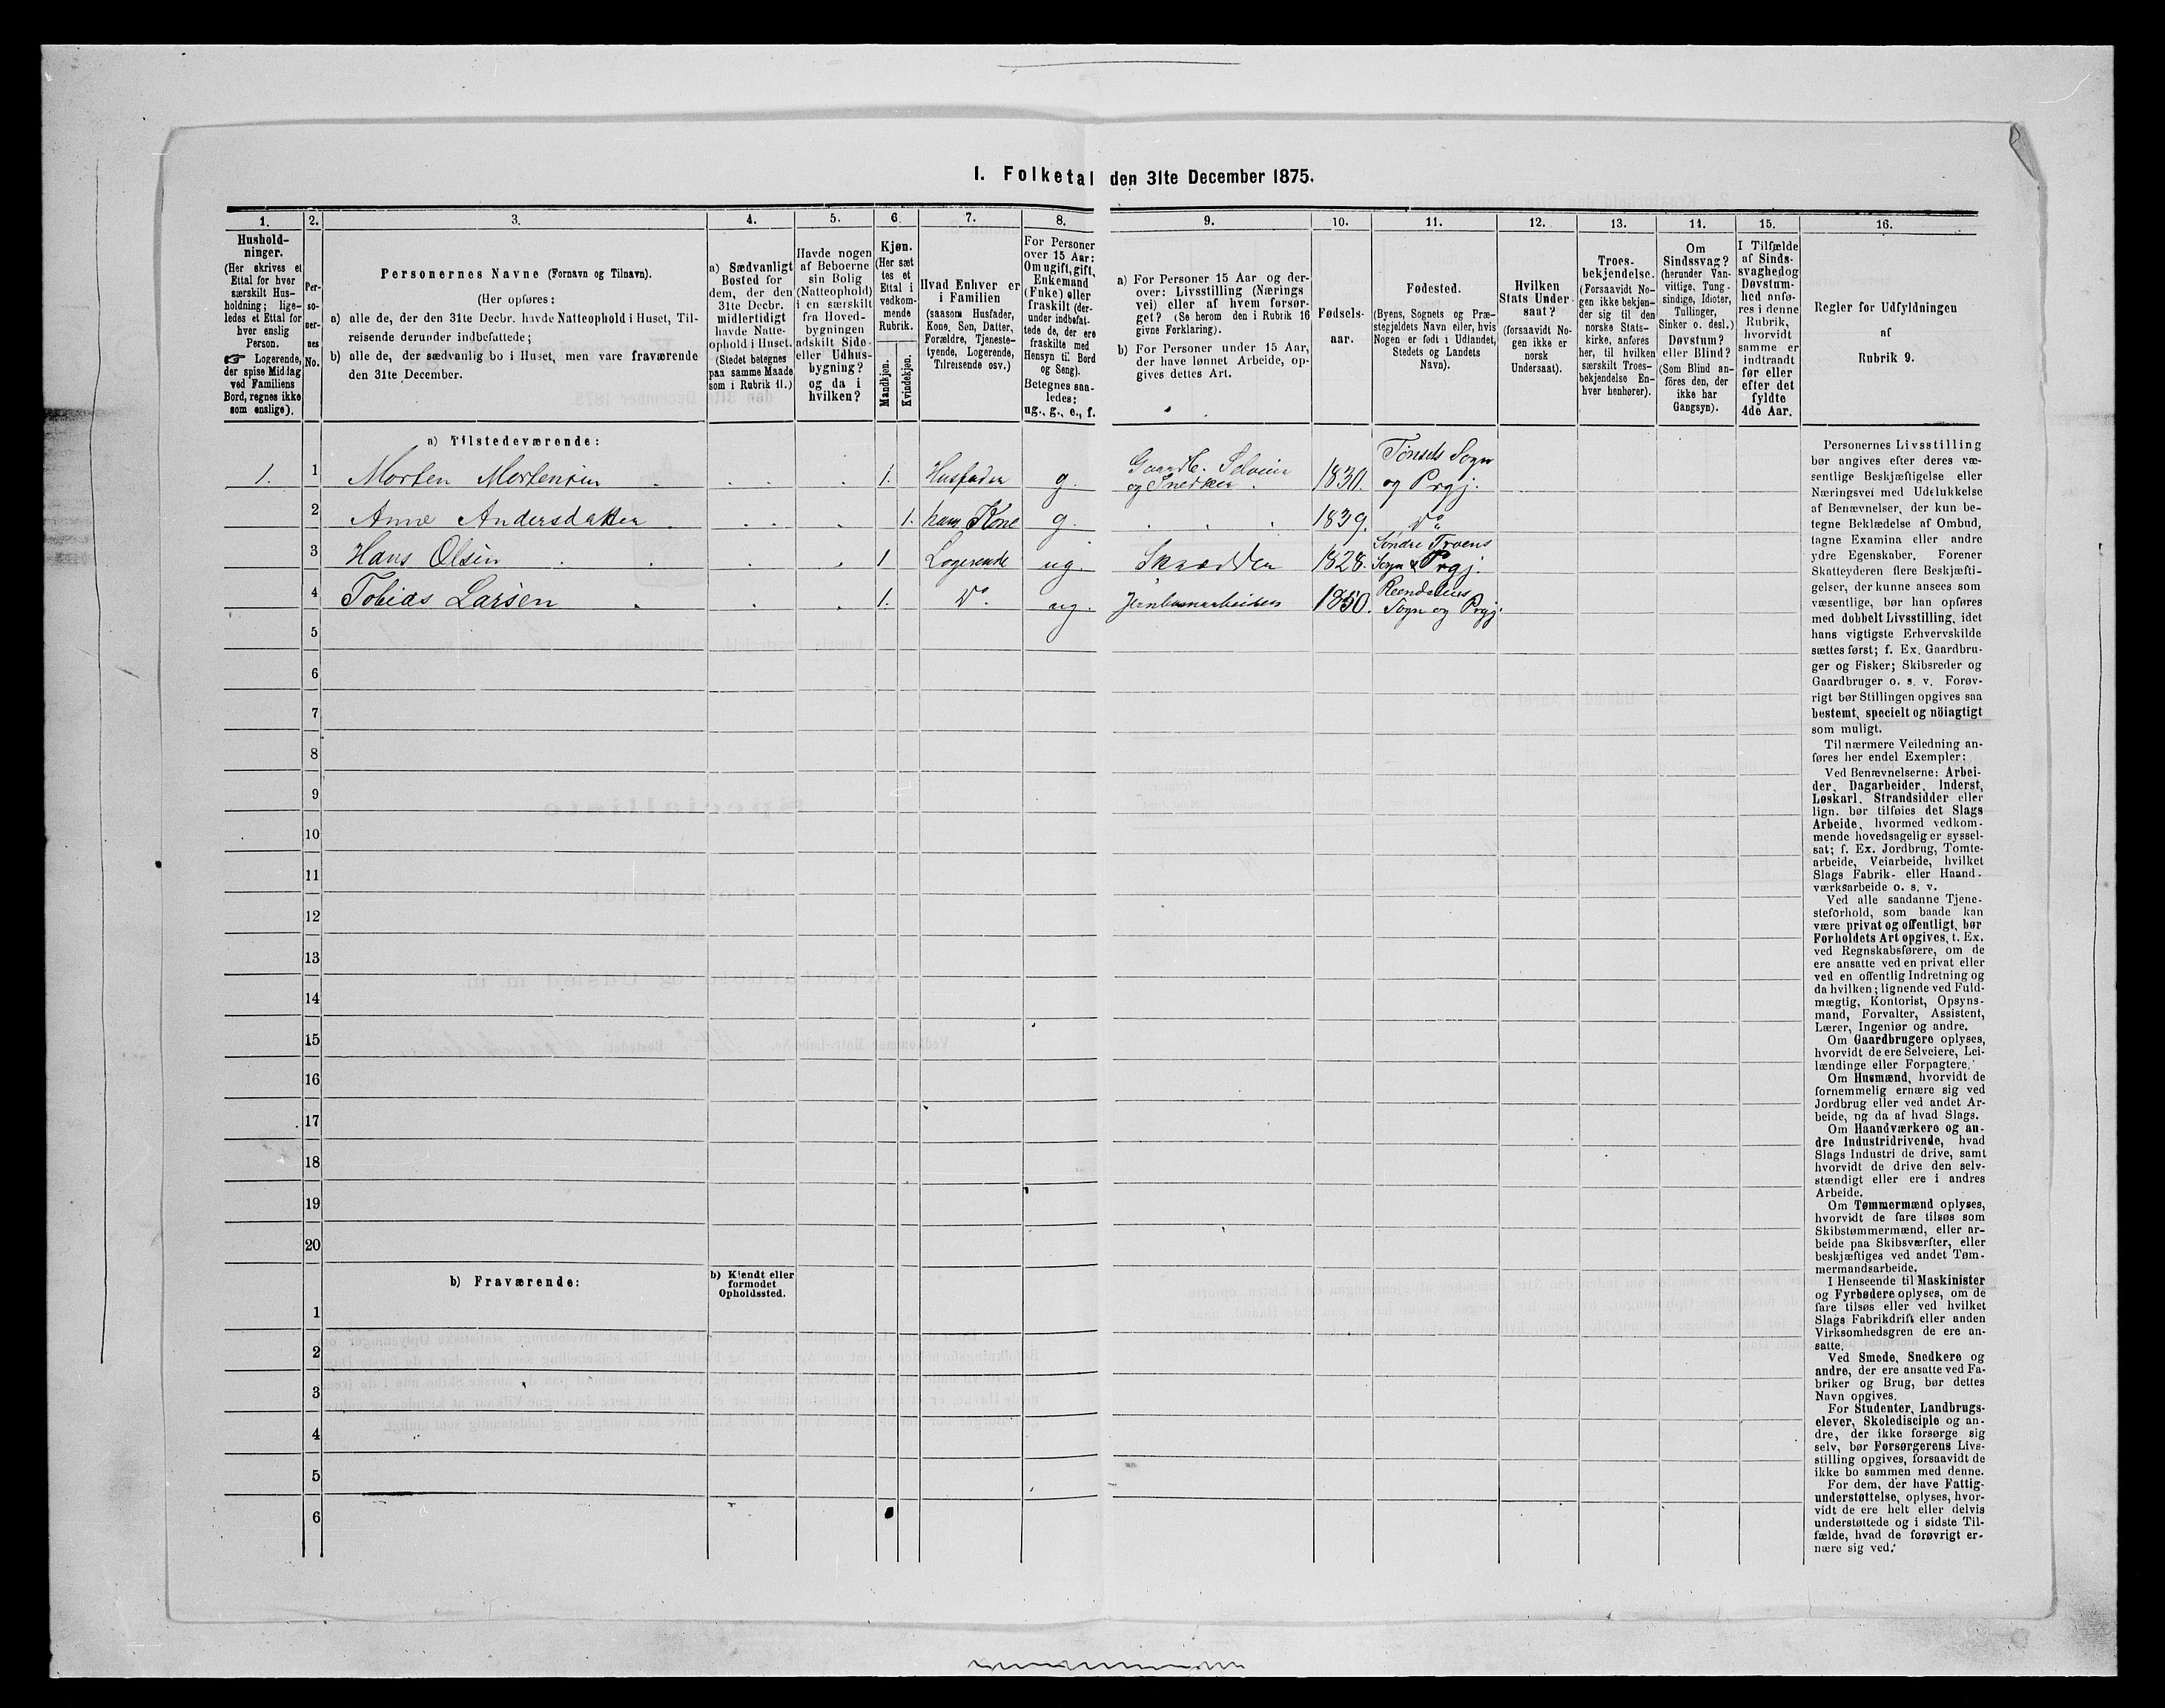 I. Folketal den 31te December 1875.
1.
2.
3.
4.
5.
6.
7.
8.
9.
10.
11.
12.
13.
14.
15.
16.
Hushold-
ninger.
(Her skrives et
Ettal for hver
særskilt Hus-
holdning; lige-
ledes et Ettal for
hver enslig
Person.
☞ Logerende,
der spise Middag
ved Familiens
Bord, regnes ikke
som enslige).
Per-
so-
ner-
nes
No.
Personernes Navne (Fornavn og Tilnavn).
(Her opføres:
a) alle de, der den 31te Decbr. havde Natteophold i Huset, Til-
reisende derunder indbefattede;
b) alle de, der sædvanlig bo i Huset, men vare fraværende
den 31te December.
a) Sædvanligt
Bosted for
dem, der den
31te Decbr.
midlertidigt
havde Natte-
ophold i Huset.
(Stedet betegnes
paa samme Maade
som i Rubrik 11.)
Havde nogen
af Beboerne
sin Bolig
(Natteophold)
i en særskilt
fra Hoved-
bygningen
adskilt Side-
eller Udhus-
bygning?
og da i
hvilken?
Kjøn.
(Her sæt
tes et
Ettal i
vedkom-
mende
Rubrik.
Mandkjøn.
Kvindekjøn.
Hvad Enhver er
i Familien
(saasom Husfader,
Kone, Søn, Datter,
Forældre, Tjeneste-
tyende, Logerende,
Tilreisende osv.)
For Personer
over 15 Aar:
Om ugift, gift,
Enkemand
(Enke) eller
fraskilt (der-
under indbefat-
tede de, der ere
fraskilte med
Hensyn til Bord
og Seng).
Betegnes saa-
ledes:
ug., g., e., f.
a) For Personer 15 Aar og der-
over: Livsstilling (Nærings
vei) eller af hvem forsør-
get? (Se herom den i Rubrik 16
givne Forklaring).
b) For Personer under 15 Aar,
der have lønnet Arbeide, op-
gives dettes Art.
Fødsels-
aar.
Fødested.
(Byens, Sognets og Præ-
stegjeldets Navn eller, hvis
Nogen er født i Udlandet,
Stedets og Landets
Navn).
Hvilken
Stats Under-
saat?
(forsaavidt No-
gen ikke er
norsk
Undersaat).
Troes-
bekjendelse.
(Forsaavidt No-
gen ikke bekjen-
der sig til den
norske Stats-
kirke, anføres
her, til hvilken
særskilt Troes-
bekjendelse En-
hver henhører).
Om
Sindssvag?
(herunder Van-
vittige, Tung-
sindige, Idioter,
Tullinger,
Sinker o. desl.)
Døvstum?
eller Blind?
(Som Blind an-
føres den, der
ikke har
Gangsyn).
I Tilfælde
af Sinds-
svaghed og
Døvstum-
hed anfø-
res i denne
Rubrik,
hvorvidt
samme er
indtraadt
før eller
efter det
fyldte
4de Aar.
Regler for Udfyldningen
af
Rubrik 9.
a) Tilstedeværende:
1. 1 Morten Mortensen 1. Husfader g. Gaardb. Selveier og Snedker. 1830. Tønsets Sogn
og Prgj.
2 Anne Andersdatter 1. hans Kone g. 1839. Do
3 Hans Olsen 1 Logerende ug. Skrædder 1828. Søndre Troens
Sogn & Prgj.
4 Tobias Larsen 1. Do. ug. Jernbanearbeider 1850. Reendalens
Sogn og Prgj.
5
6
7
8
9
10
11
12
13
14
15
16
17
18
19
20
b) Fraværende:
b) Kjendt eller
formodet
Opholdssted.
1
2
3
4
5
6
Personernes Livsstilling
bør angives efter deres væ-
sentlige Beskjæftigelse eller
Næringsvei med Udelukkelse
af Benævnelser, der kun be-
tegne Beklædelse af Ombud,
tagne Examina eller andre
ydre Egenskaber. Forener
Skatteyderen flere Beskjæfti-
gelser, der kunne ansees som
væsentlige, bør han opføres
med dobbelt Livsstilling, idet
hans vigtigste Erhvervskilde
sættes først; f. Ex. Gaardbru-
ger og Fisker; Skibsreder og
Gaardbruger o. s. v. Forøv-
rigt bør Stillingen opgives saa
bestemt, specielt og nöiagtigt
som muligt.
Til nærmere Veiledning an-
føres her endel Exempler:
Ved Benævnelserne: Arbei-
der, Dagarbeider, Inderst,
Løskarl, Strandsidder eller
lign. bør tilføies det Slags
Arbeide, hvormed vedkom-
mende hovedsagelig er syssel-
sat; f. Ex. Jordbrug, Tomte-
arbeide, Veiarbeide, hvilket
Slags Fabrik- eller Haand-
værksarbeide o. s. v.
Ved alle saadanne Tjene-
steforhold, som baade kan
være privat og offentligt, bør
Forholdets Art opgives, t. Ex.
ved Regnskabsførere, om de
ere ansatte ved en privat eller
ved en offentlig Indretning og
da hvilken; lignende ved Fuld-
mægtig, Kontorist, Opsyns-
mand, Forvalter, Assistent,
Lærer, Ingeniør og andre.
Om Gaardbrugere oplyses,
hvorvidt de ere Selveiere, Lei-
lændinge eller Forpagtere.
Om Husmænd, hvorvidt de
fornemmelig ernære sig ved
Jordbrug eller ved andet Ar-
beide, og da af hvad Slags.
Om Haandværkere og an-
dre Industridrivende, hvad
Slags Industri de drive, samt
hvorvidt de drive den selv-
stændigt eller ere i andres
Arbeide.
Om Tømmermænd oplyses,
hvorvidt de fare tilsøs som
Skibstømmermænd, eller ar-
beide paa Skibsværfter, eller
beskjæftiges ved andet Tøm-
mermandsarbeide.
I Henseende til Maskinister
og Fyrbødere oplyses, om de
fare tilsøs eller ved hvilket
Slags Fabrikdrift eller anden
Virksomhedsgren de ere an-
satte.
Ved Smede, Snedkere og
andre, der ere ansatte ved Fa-
briker og Brug, bør dettes
Navn opgives.
For Studenter, Landbrugs-
elever, Skoledisciple og an-
dre, der ikke forsørge sig
selv, bør Forsørgerens Livs-
stilling opgives, forsaavidt de
ikke bo sammen med denne.
For dem, der have Fattig-
understøttelse, oplyses, hvor-
vidt de ere helt eller delvis
understøttede og i sidste Til-
fælde, hvad de forøvrigt er-
nære sig ved.